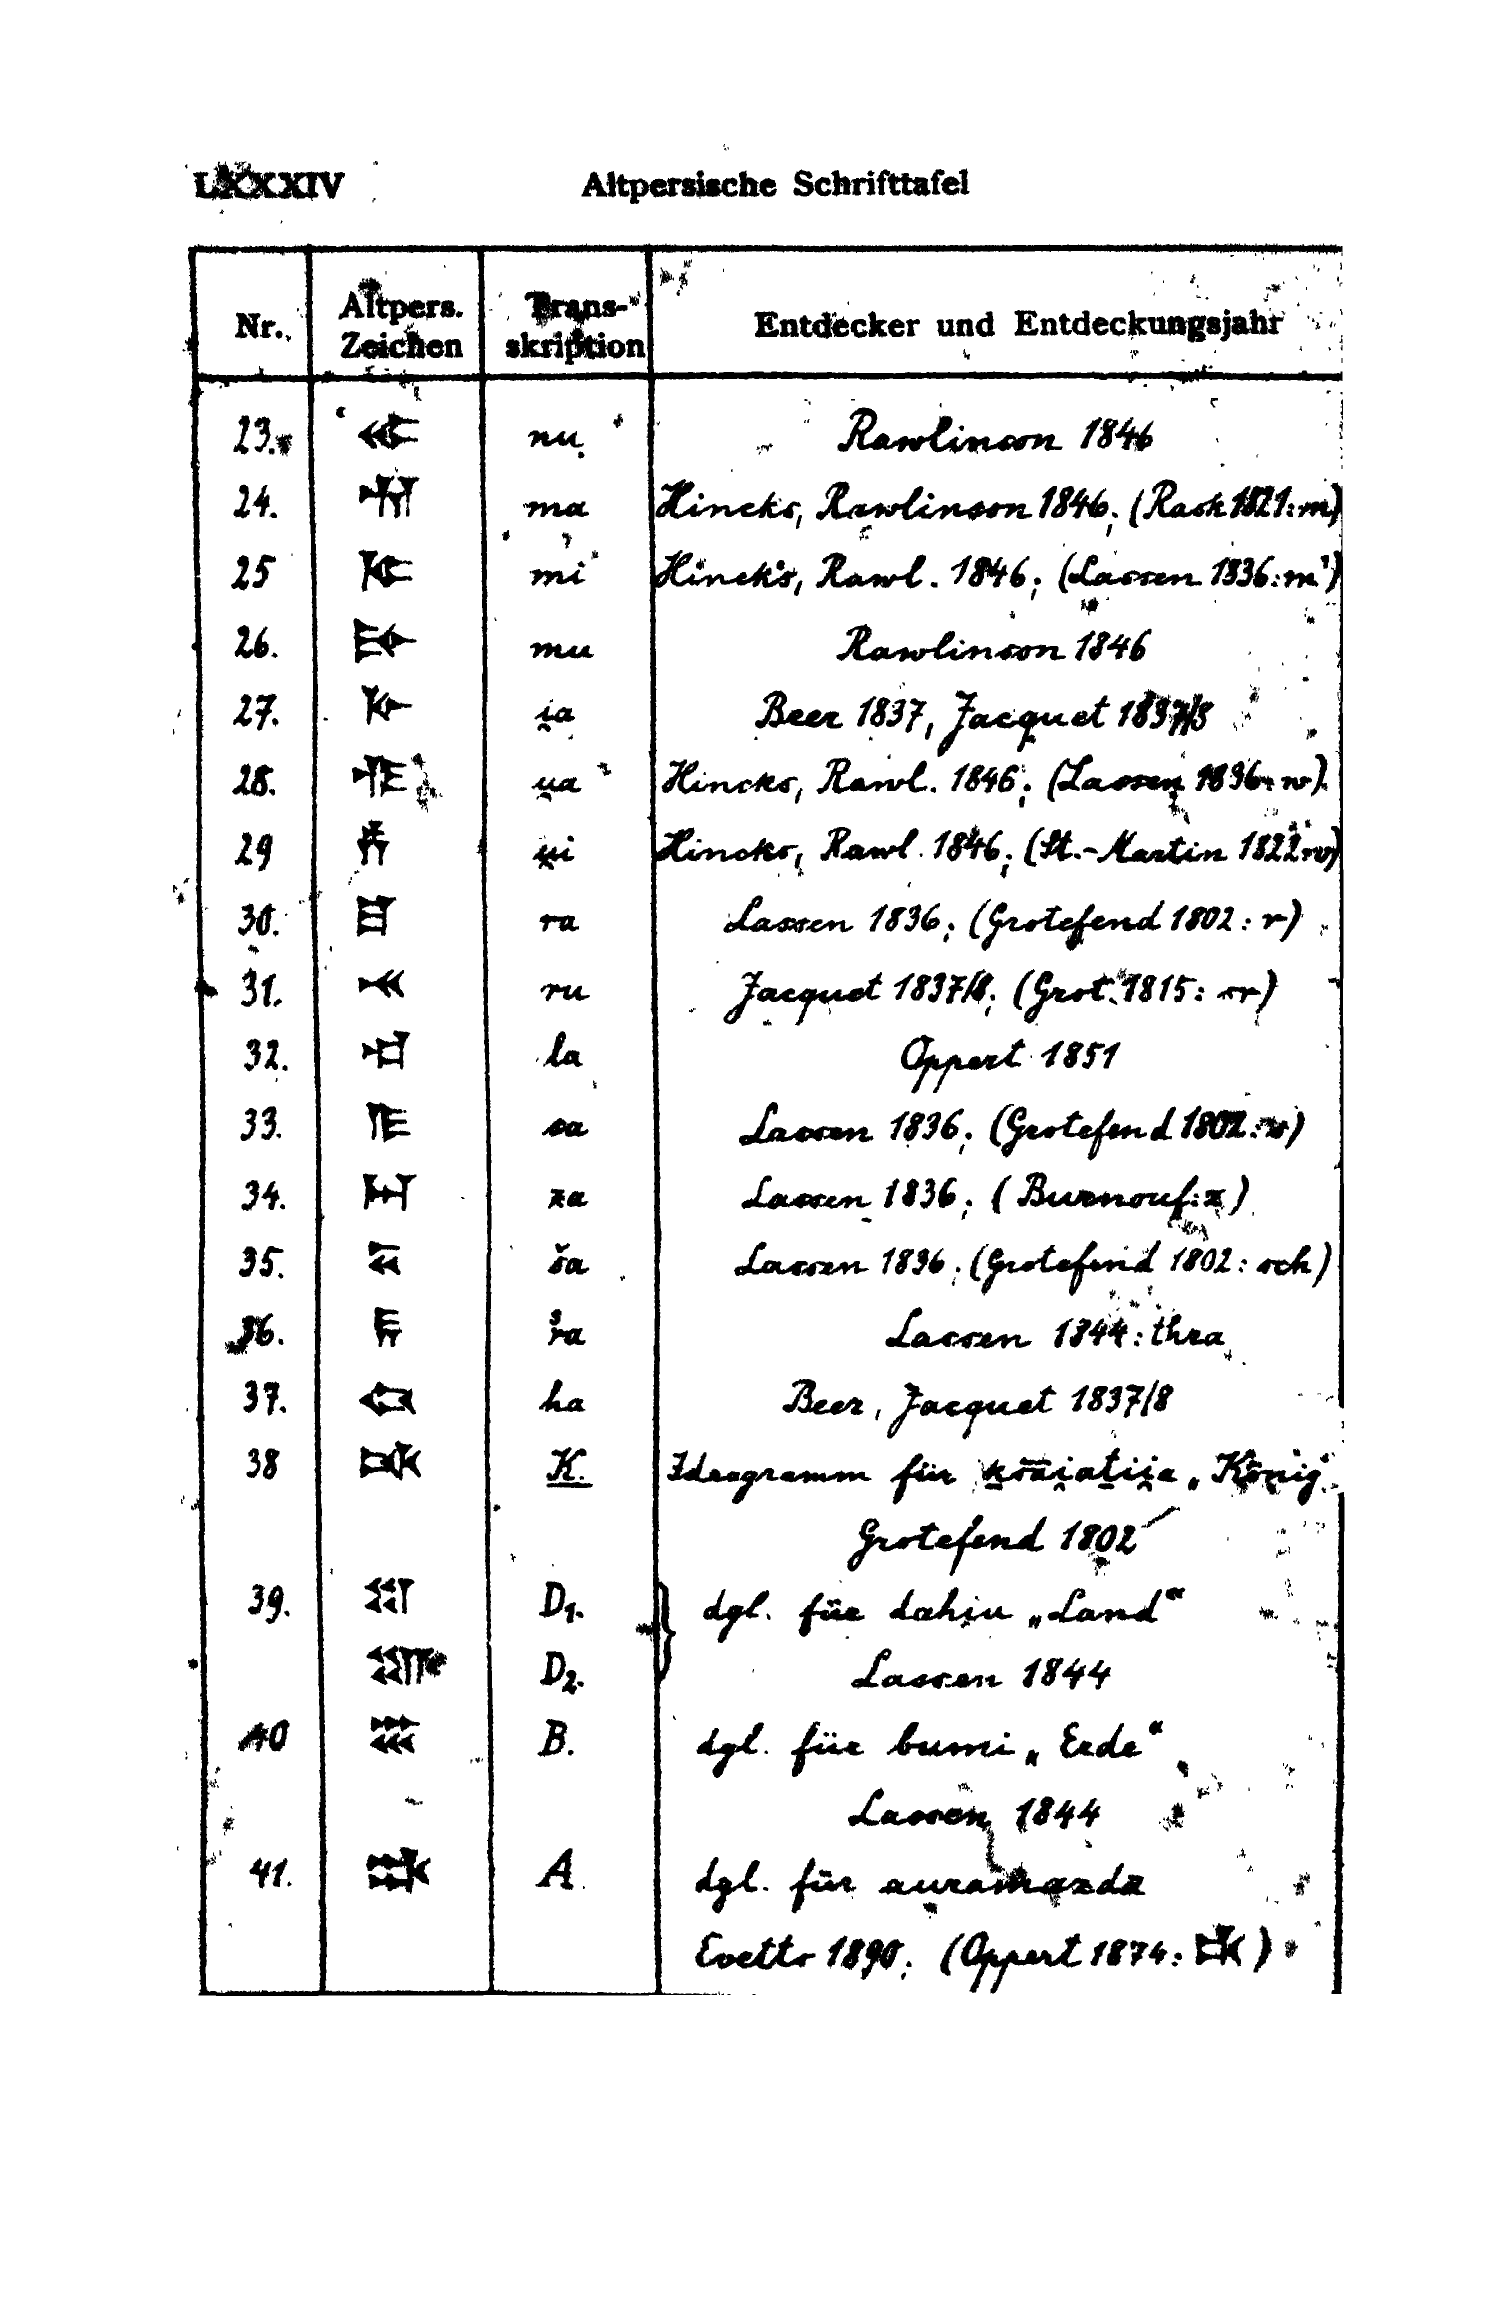 LXXXIV Altpersische Schrifttafel
Nr. Altpers. Zeichen Transkription Entdecker und Entdeckungsjahr
23. 𐎵 nu Rawlinson 1846
24. 𐎶 ma Hincks, Rawlinson 1846; (Rask 1821: m)
25 𐎷 mi Hincks, Rawl. 1846; (Lassen 1836: m')
26. 𐎸 mu Rawlinson 1846
27. 𐎹 i̯a Beer 1837, Jacquet 1837/8
28. 𐎺 u̯a Hincks, Rawl. 1846; (Lassen 1836: w).
29 𐎻 u̯i Hincks, Rawl. 1846; (St.-Martin 1822: v)
30. 𐎼 ra Lassen 1836; (Grotefend 1802: r)
31. 𐎽 ru Jacquet 1837/8; (Grot. 1815: sr)
32. 𐎾 la Oppert 1851
33. 𐎿 sa Lassen 1836; (Grotefend 1802:
34. 𐏀 za Lassen 1836; (Burnouf: z)
35. 𐏁 ša Lassen 1836; (Grotefend 1802: sch)
36. 𐏂 ra Lassen 1844: thra
37. 𐏃 ha Beer, Jacquet 1837/8
38 𐏋 K. Ideogramm für „König"
Grotefend 1802
39. 𐏌 D1. dgl. für dahi̯u „Land“
𐏍 D2. Lassen 1844
40 𐏏 B. dgl. für bumi „Erde“
Lassen 1844
41. 𐏈 A dgl. für auramazda
Evetts 1890; (Oppert 1874: )